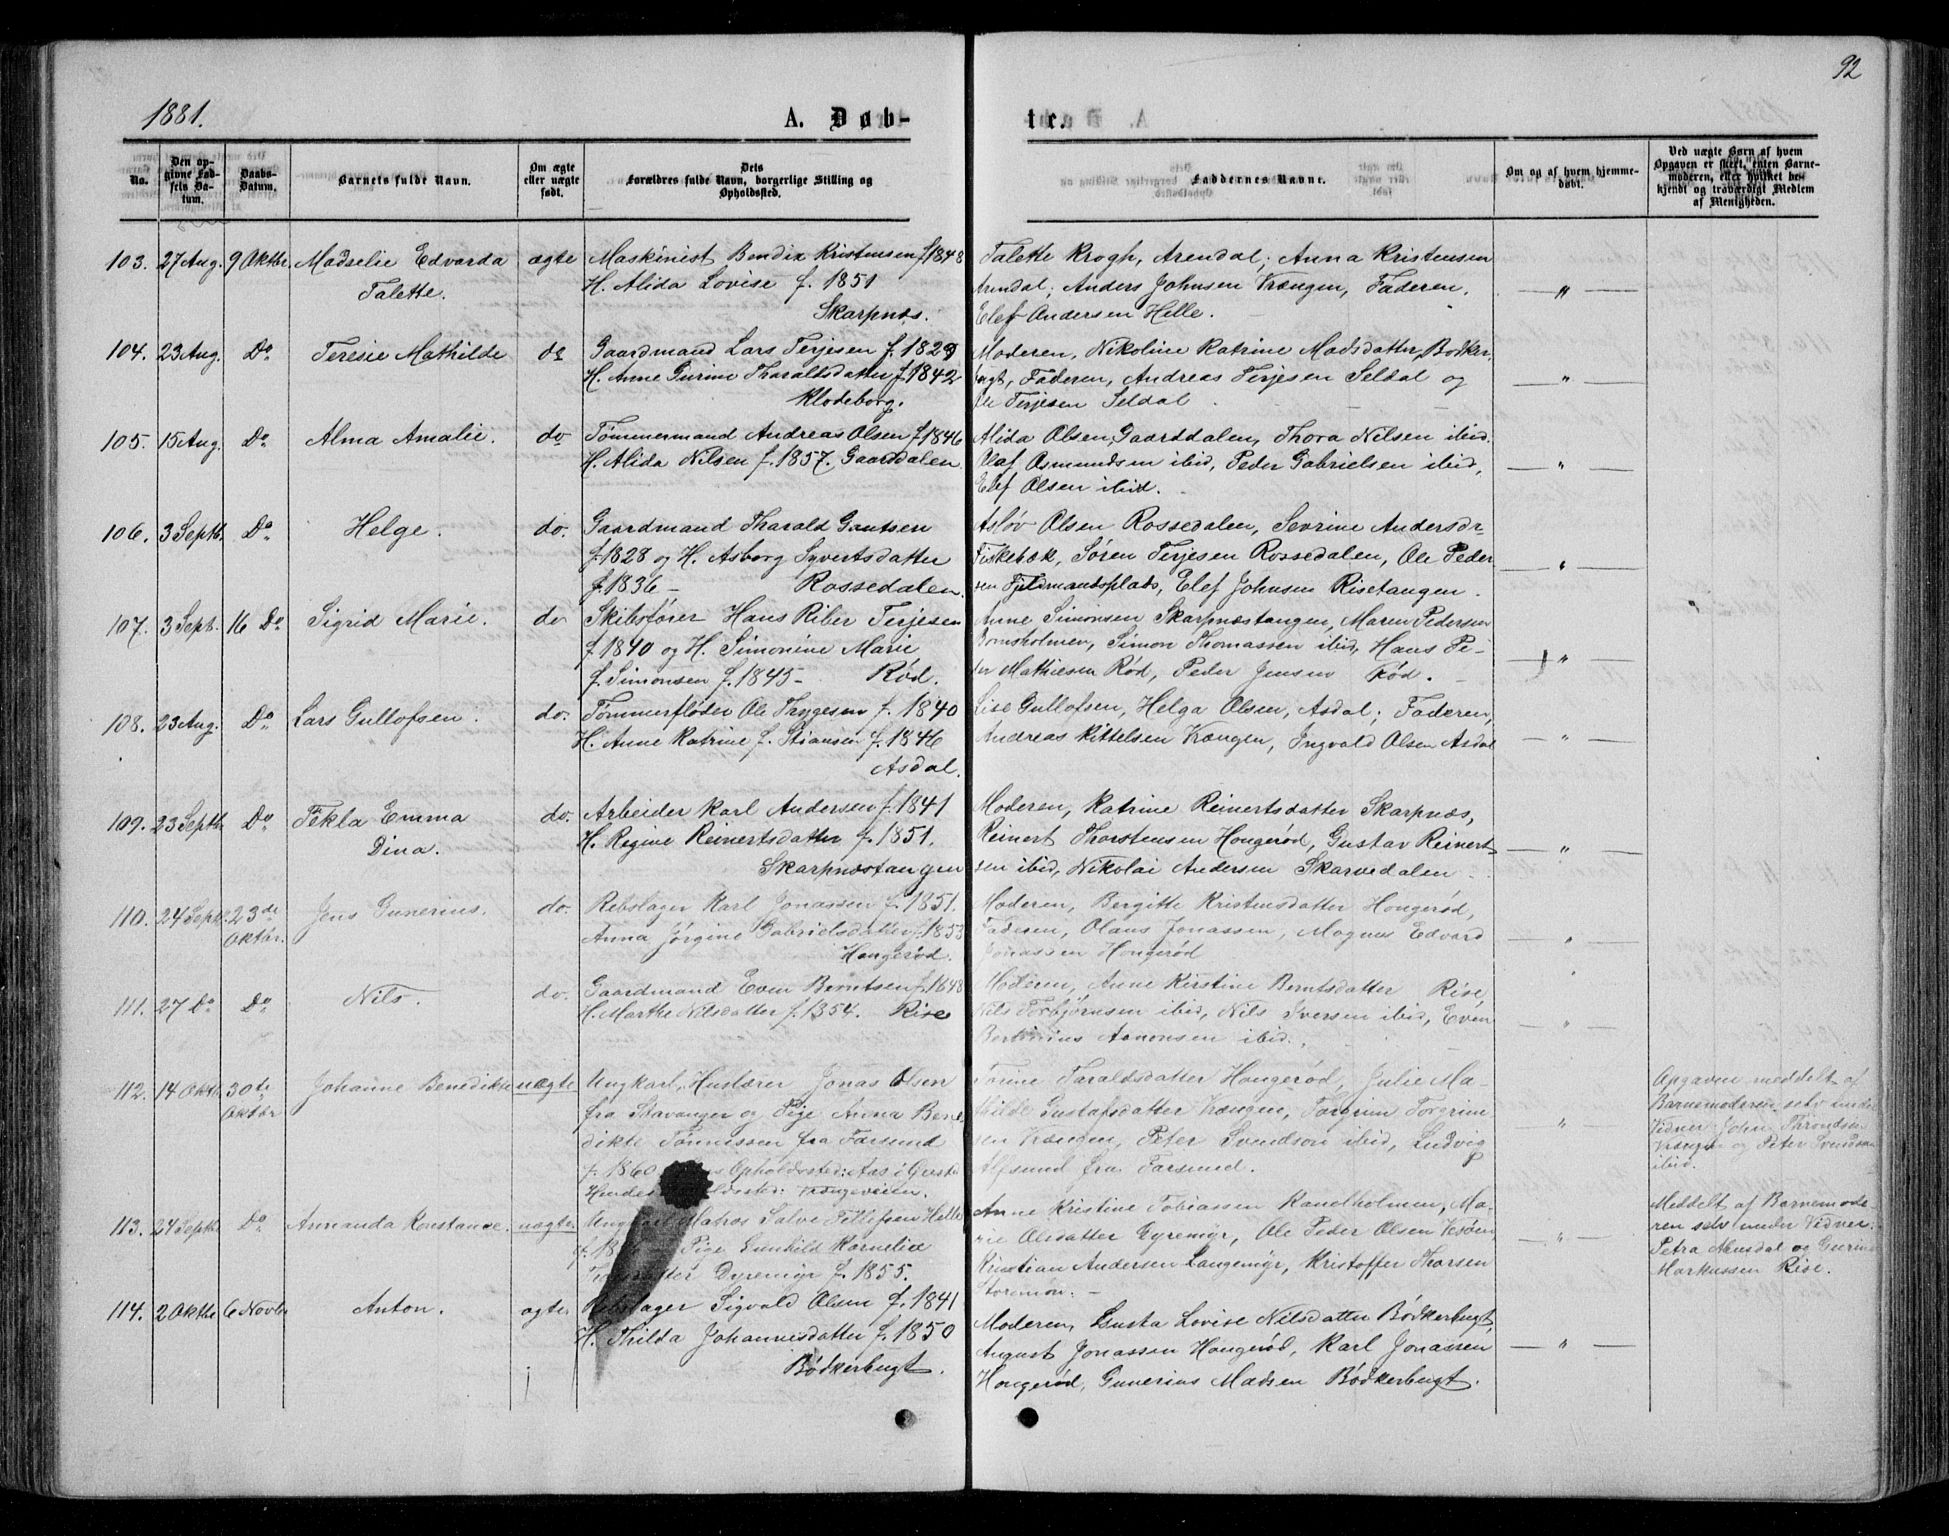 92
1881.
A. Døb-
te.
No.
Den opgivne Fødsels Datum.
Daabs-Datum.
Barnets fulde Navn.
Om ægte eller uægte født.
Dets Forældres fulde Navn, borgerlige Stilling og Opholdssted.
Faddernes Navne.
Om og af hvem hjemmedøbt.
Ved uægte Børn af hvem Opgaven er skeet, enten Barnemoderen, eller hvilket bekjendt og troværdigt Medlem af Menigheden.
103. 27 Aug. 9 Oktbr. Madselie Edvarda ægte Maskinist Bendix Kristensen f. 1848 Talette Krogh, Arendal; Anna Kristensen
Talette. H. Alida Lovise f. 1851 Arendal; Anders Johnsen Krængen, Faderen, — " —
Skarpnæs. Elef Andersen Helle.
104. 23 Aug. Do Teresie Mathilde do Gaardmand Lars Terjesen f. 1829 Moderen, Nikoline Katrine Madsdatter, Bødker-
H. Anne Gurine Tharaldsdatter f. 1842 bugt, Faderen, Andreas Terjesen Seldal og — " —
Klodeborg. Ole Terjesen Seldal.
105. 15 Aug. Do Alma Amalie. do Tømmermand Andreas Olsen f. 1846 Alida Olsen, Gaarddalen, Thora Nilsen ibid.
H. Alida Nilsen f. 1857. Gaarddalen. Olaf Osmundsen ibid, Peder Gabrielsen ibid, — " —
Elef Olsen ibid.
106. 3 Septb. Do Helge. do. Gaardmand Tharald Gautsen Asløv Olsen Rossedalen, Sevrine Andersdr
f. 1828 og H. Asborg Syvertsdatter Fiskebæk, Søren Terjesen Rossedalen, Ole Peder-
f. 1836 — Rossedalen. sen Fjeldmandsplads, Elef Johnsen Risetangen. — " —
107. 3 Sept. 16 Do Sigrid Marie. do Skibsfører Hans Riber Terjesen Anne Simonsen Skarpnæstangen, Maren Pedersen
f. 1840 og H. Simonine Marie Bomsholmen, Simon Thomassen ibid, Hans Pe-
f. Simonsen f. 1845 — Rød. der Mathiesen Rød, Peder Jensen Rød. — " —
108. 23 Aug. Do Lars Gullofsen. do. Tømmerfløder Ole Trygesen f. 1840 Lise Gullofsen, Helga Olsen, Asdal; Faderen,
H. Anne Katrine f. Stiansen f. 1846 Andreas Kittelsen Krængen, Ingvald Olsen Asdal — " —
Asdal.
109. 23 Septb. Do Tekla Emma do. Arbeider Karl Andersen f. 1841 Moderen, Katrine Reinertsdatter Skarpnæs,
Dina. H. Regine Reinertsdatter f. 1851. Reinert Thorstensen Hongerød, Gustav Reinert- — " —
Skarpnæstangen sen ibid, Nikolai Andersen Skarvedalen.
110. 24 Septb. 23de Oktbr. Jens Gunerius. do. Rebslager Karl Jonassen f. 1851. Moderen, Bergitte Kristensdatter Hongerød,
Anna Jørgine Gabrielsdatter f. 1853 Faderen, Olaus Jonassen, Magnus Edvard — " —
Hongerød. Jonassen Hongerød
111. 27 Do Do Nils. do. Gaardmand Even Berntsen f. 1848 Moderen, Anne Kirstine Berntsdatter Rise,
H. Marthe Nilsdatter f. 1854. Rise Nils Torbjørnsen ibid, Nils Iversen ibid, Even — " —
Aanonsen ibid.
112. 14 Oktb. 30te Oktbr Johanne Benedikte uægte Ungkarl, Huslærer Jonas Olsen Tonine Taraldsdatter Hongerød, Julie Ma-
fra Stavanger og Pige Anna Bene- thilde Gustafsdatter Krængen, Torgrim Torgrim- — " —
dikte Tønnissen fra Farsund sen Krængen, Peter Svendsen ibid, Ludvig
f. 1860. Opholdssted: Aas i Alfsund fra Farsund.
Hendes Opholdssted: Krængeveien.
Opgaven meddelt af Barnemoderen selv under Vidner John Throndsen Krængen og Peter Svendsen ibid.
113. 24 Septb. Do Annanda Konstance. uægte Ungkarl Matros Salve Tellefsen Helle Anne Kristine Tobiassen Kanelholmen, Ma-
f. Pige Gunhild Kornelie rie Olsdatter Dyremyr, Ole Peder Olsen — " —
Dyremyr f. 1855. Kristian Andersen Langemyr, Kristoffer Thorsen
Storemón. —
Meddelt af Barnemoderen selv under Vidner: Petra Alusdal og Gurine Markussen Rise.
114. 2 Oktbr 6 Novbr Anton. ægte. Rebslager Sigvald Olsen f. 1841 Moderen, Gusta Lovise Nilsdatter Bødkerbugt,
H. Thilda Johannesdatter f. 1850 August Jonassen Hongerød, Karl Jonassen — " —
Bødkerbugt. Hongerød, Gunerius Madsen Bødkerbugt.